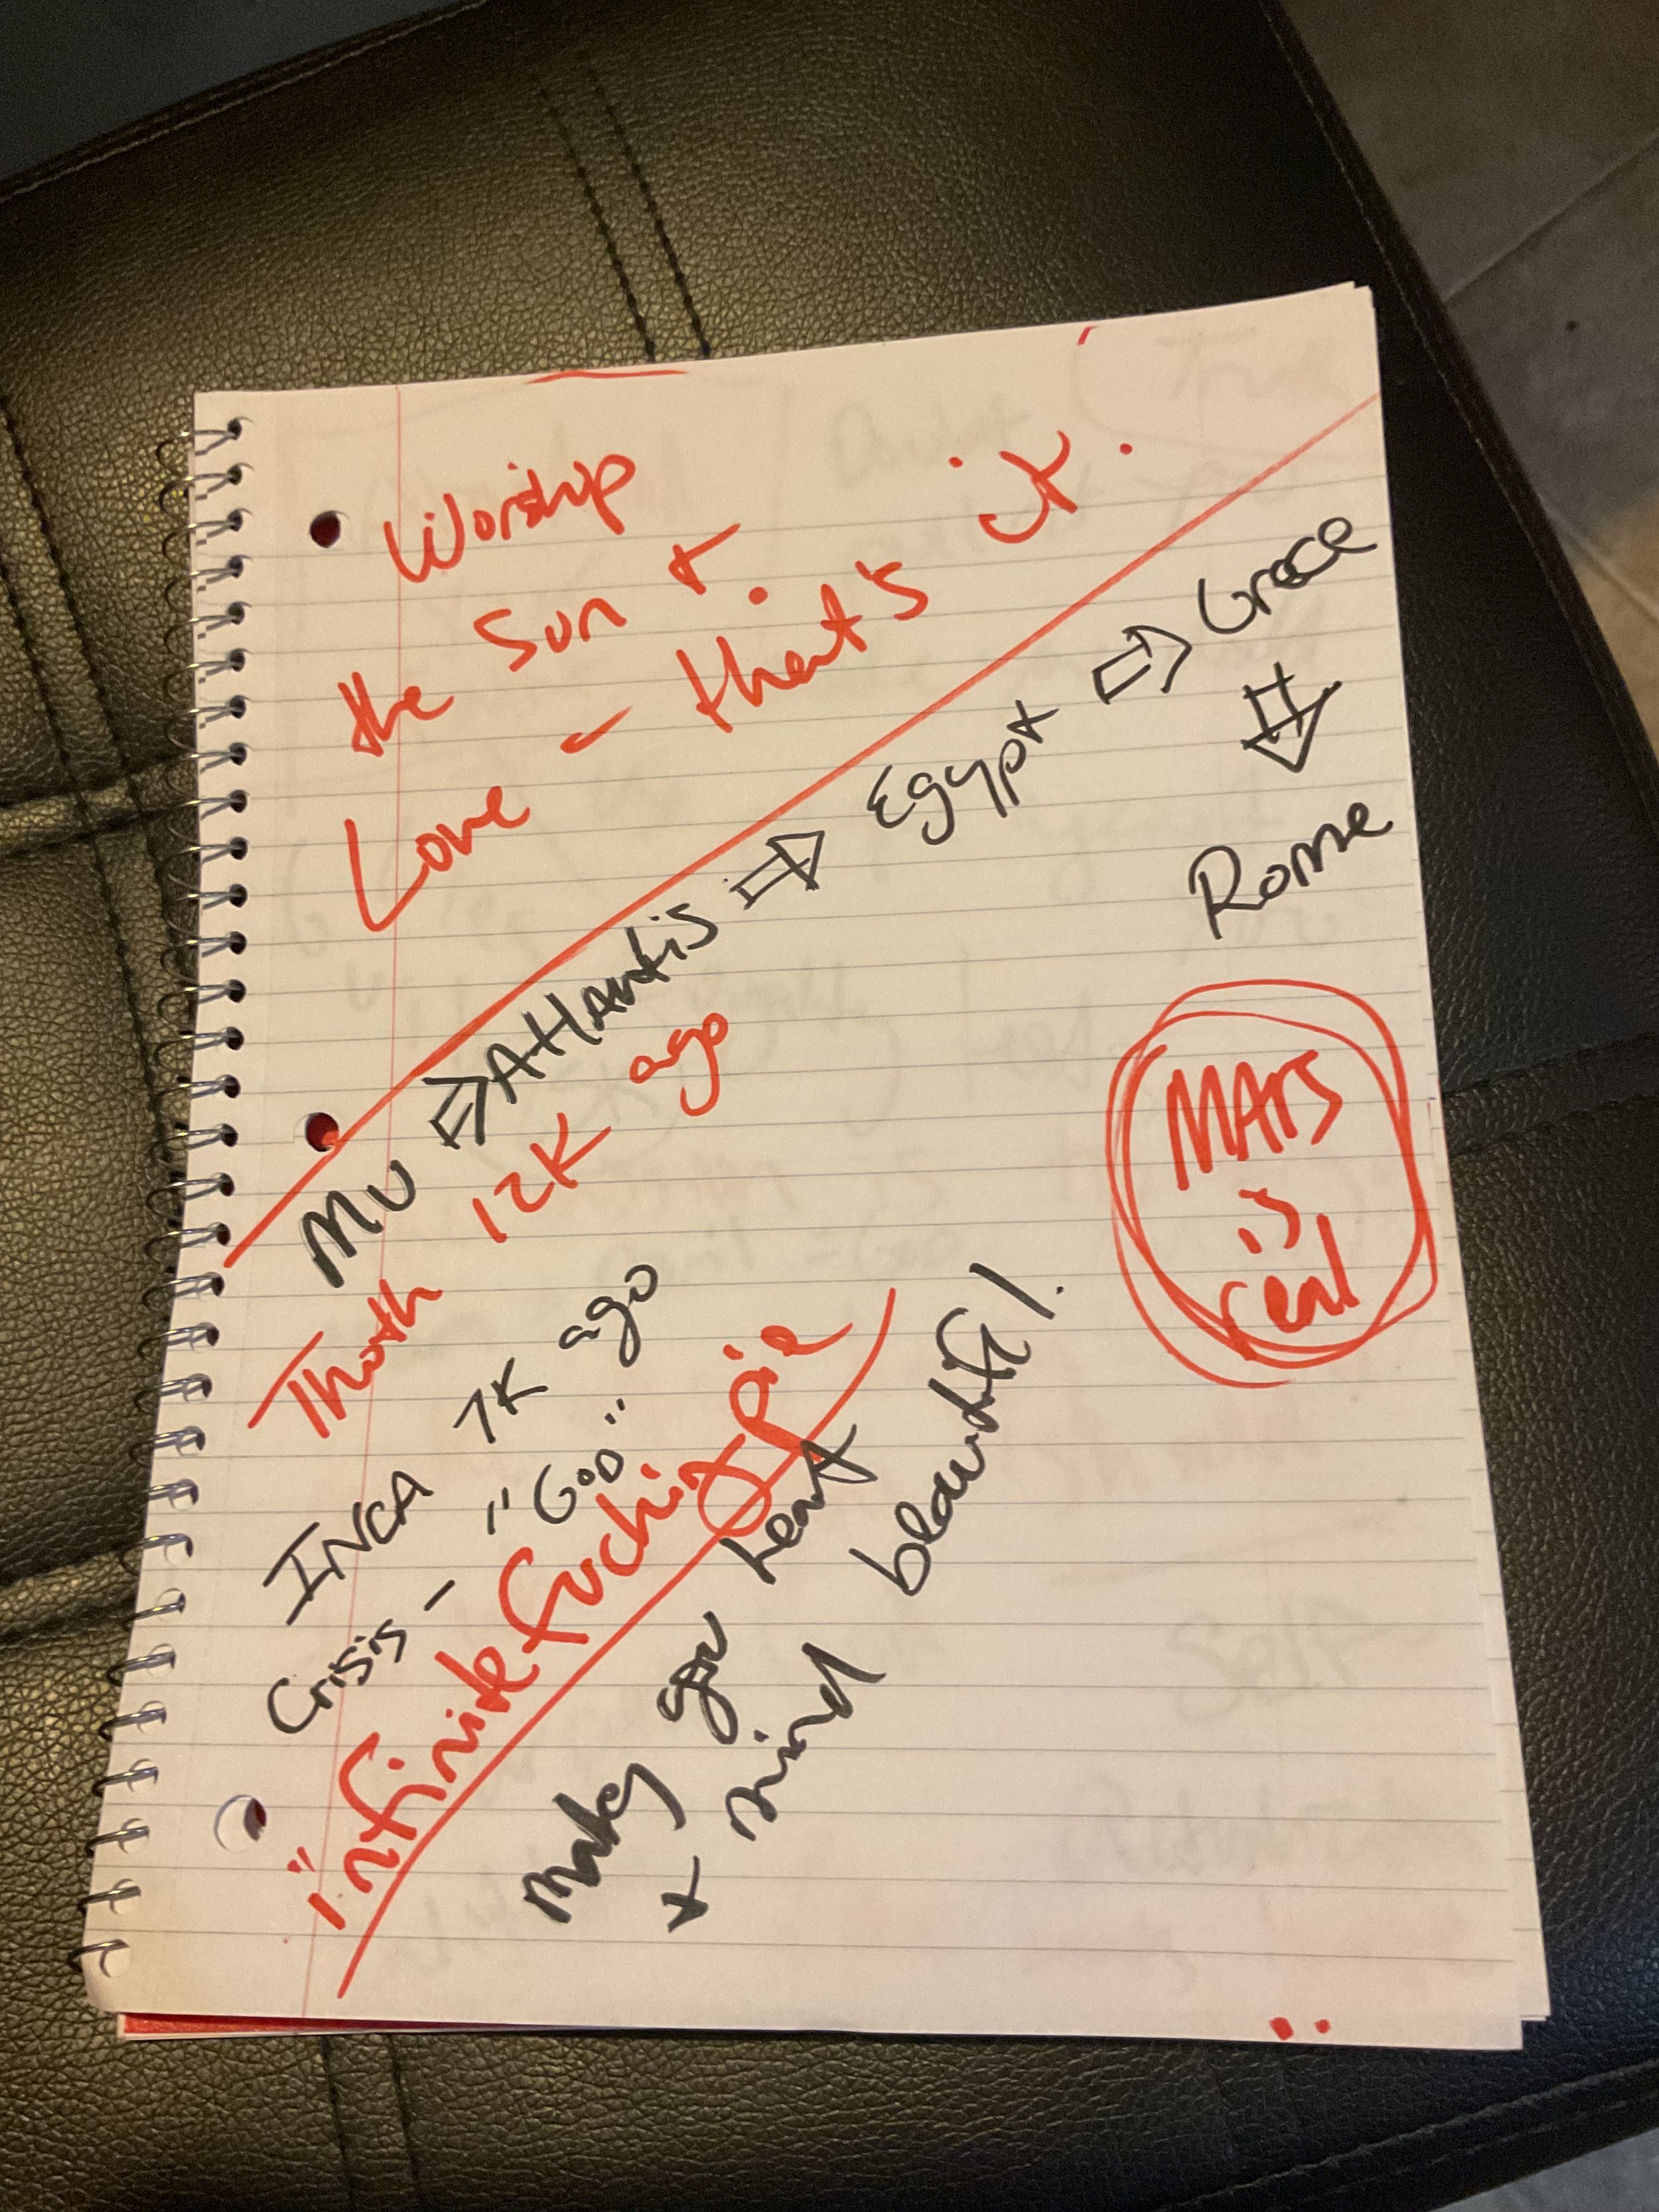 Worship
the Sun +
Love - that's it.
MU ⇒ Atlantis ⇒ Egypt ⇒ Grece
⇓
Rome
Thoth 12K ago
INCA 7K ago
Crisis - "GOD"
"infinite fucking pie
MARS
is
real
heart
+ mind beautiful.